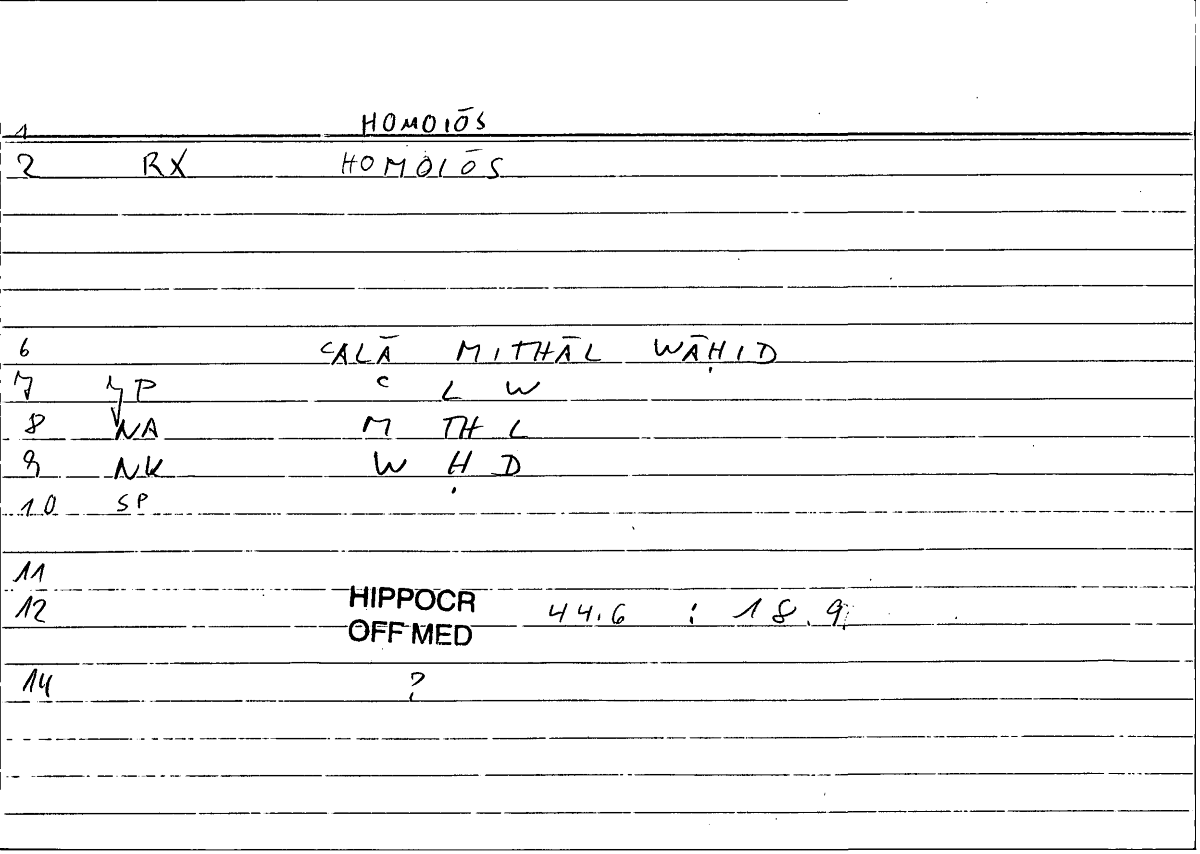 1 HOMOIŌS
2 RX HOMOIŌS
6 ʿALĀ MITHĀL WĀḤID
7 P ʿ L W
8 NA M TH L
9 NK W Ḥ D
10 SP
11
12 HIPPOCR OFF MED 44.6 : 18.9
14 ?